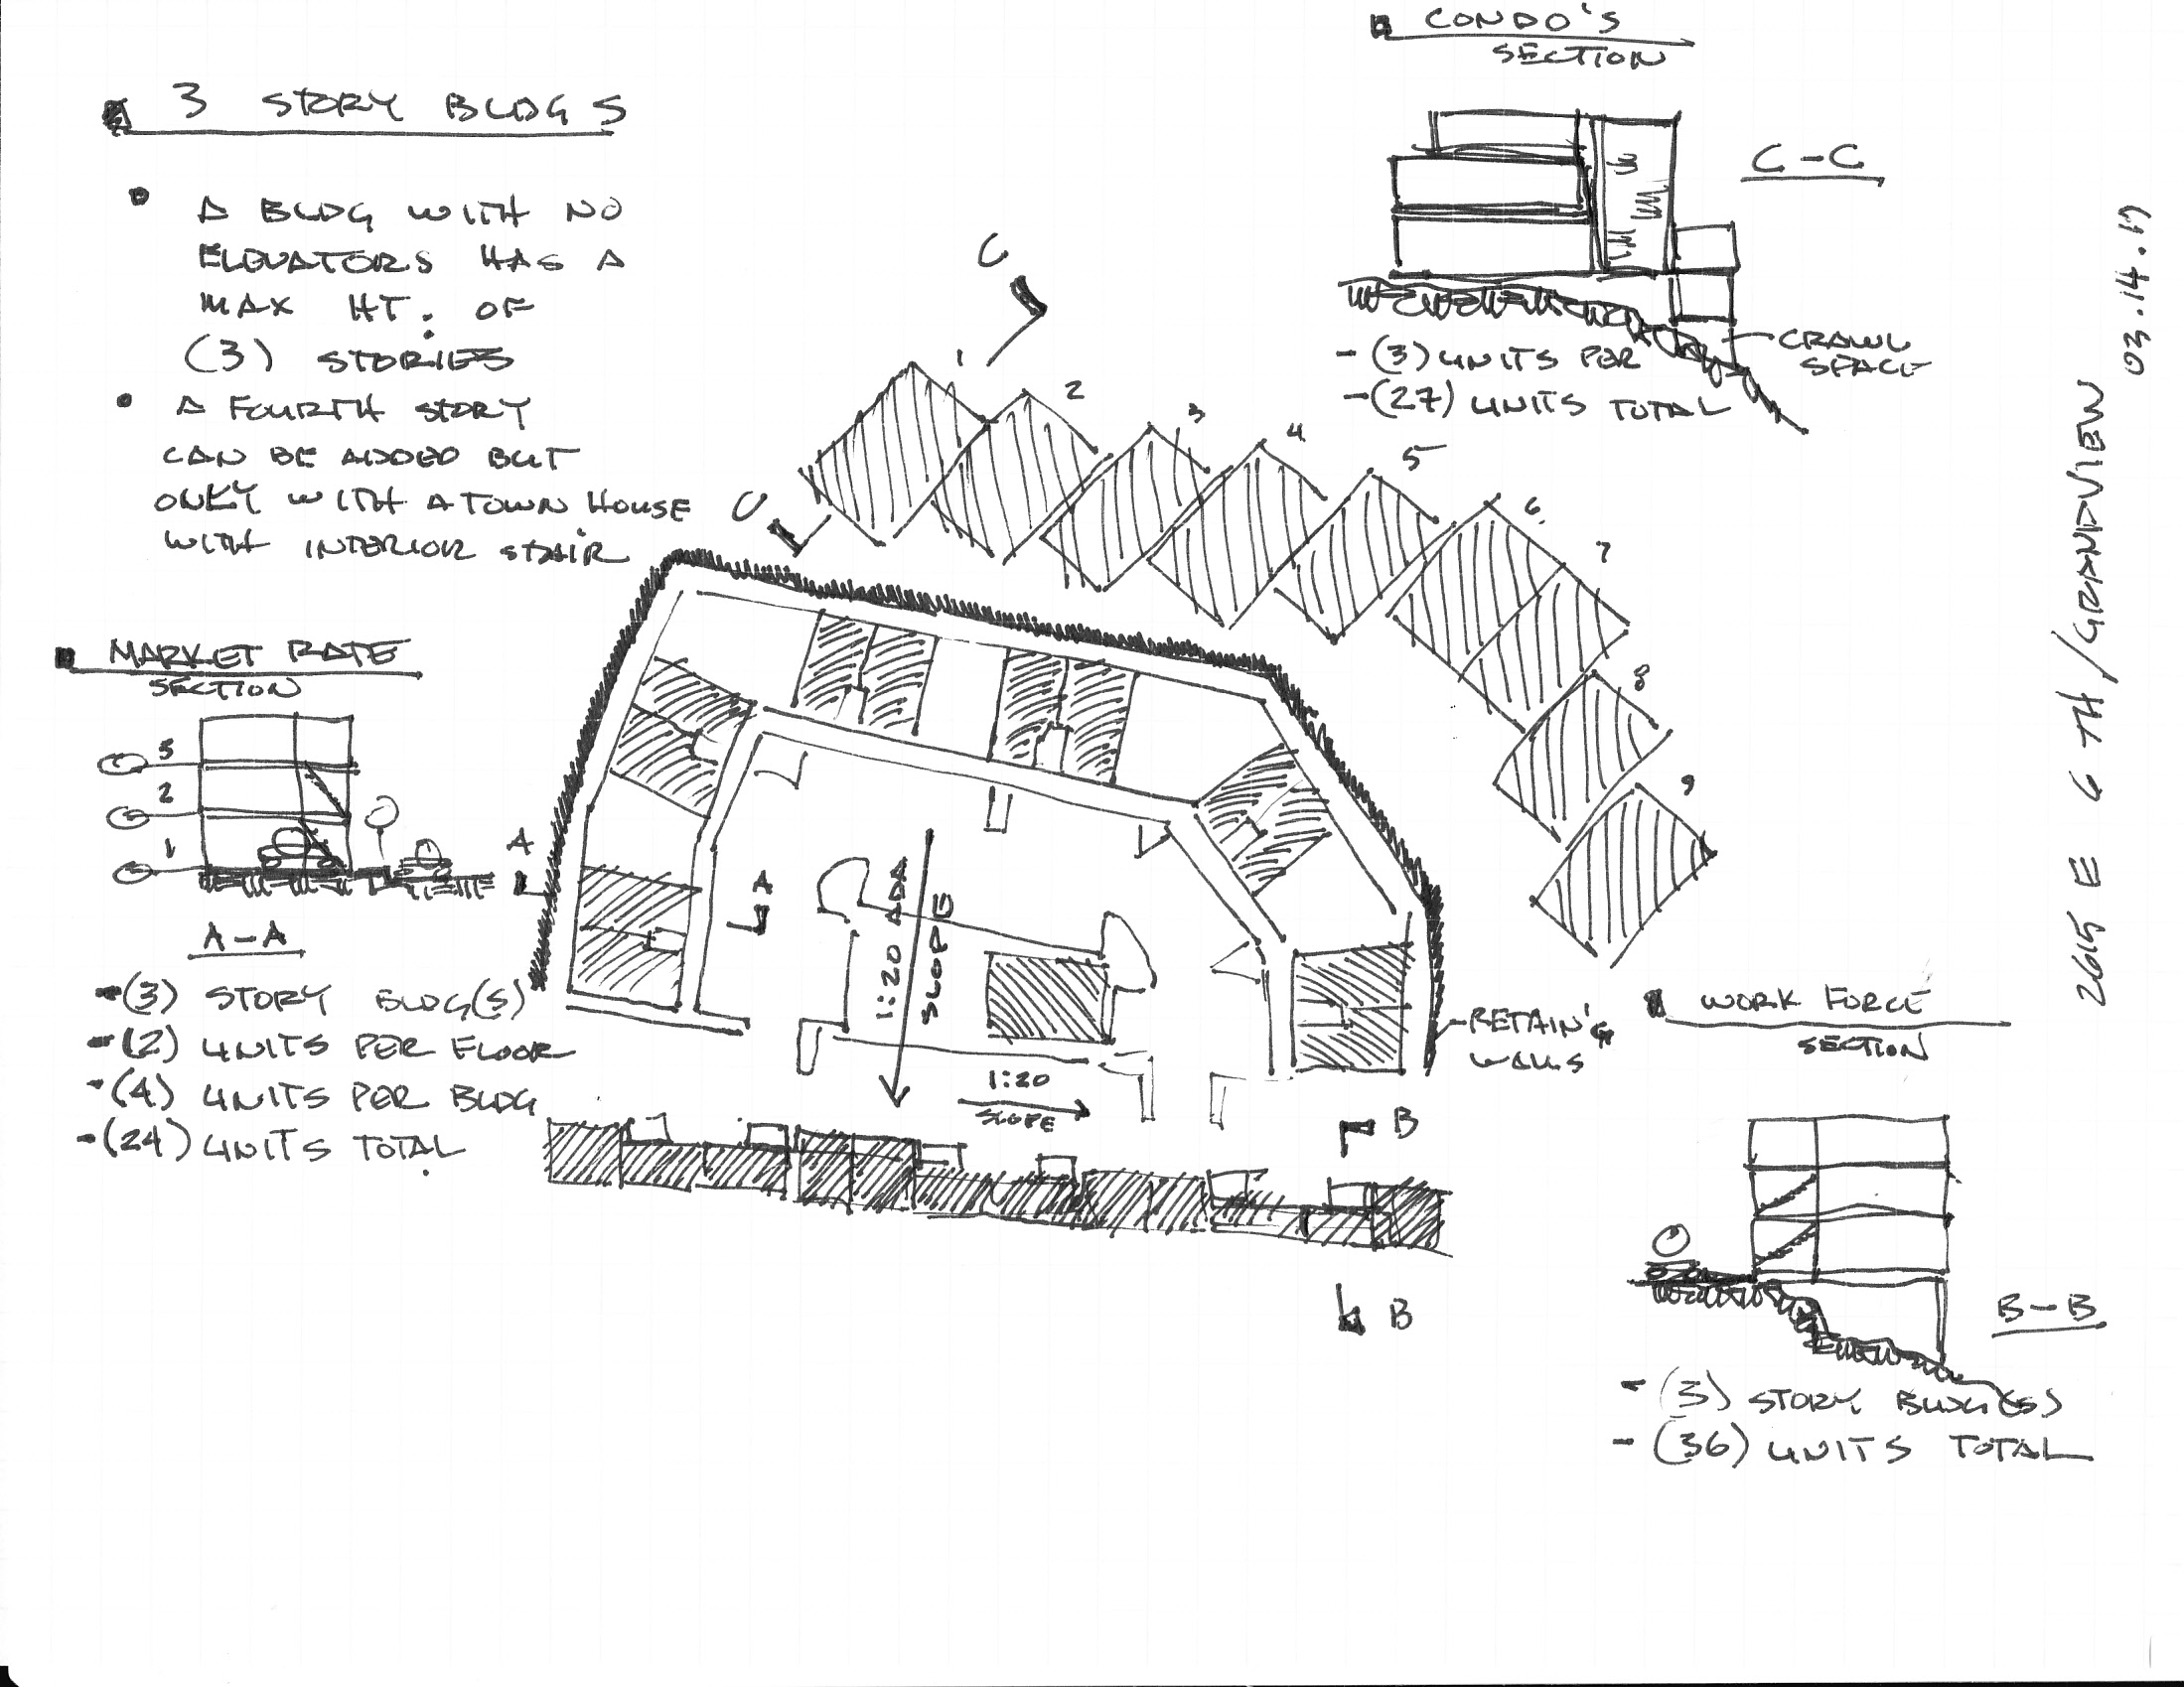 3 STORY BLDGS
• A BLDG WITH NO
ELEVATORS HAS A
MAX HT. OF
(3) STORIES
• A FOURTH STORY
CAN BE ADDED BUT
ONLY WITH A TOWN HOUSE
WITH INTERIOR STAIR
MARKET RATE
SECTION
3
2
1
A-A
-(3) STORY BLDG(S)
-(2) UNITS PER FLOOR
-(4) UNITS PER BLDG
-(24) UNITS TOTAL
CONDO'S
SECTION
C-C
CRAWL
SPACE
-(3) UNITS PER
-(27) UNITS TOTAL
C
C
1
2
3
4
5
6
7
8
9
A
A
1:20 ADA
SLOPE
1:20
SLOPE
RETAIN'G
WALLS
B
B
WORK FORCE
SECTION
B-B
-(3) STORY BLDG(S)
-(36) UNITS TOTAL
2615 E 6TH/GRANDVIEW
03.14.17